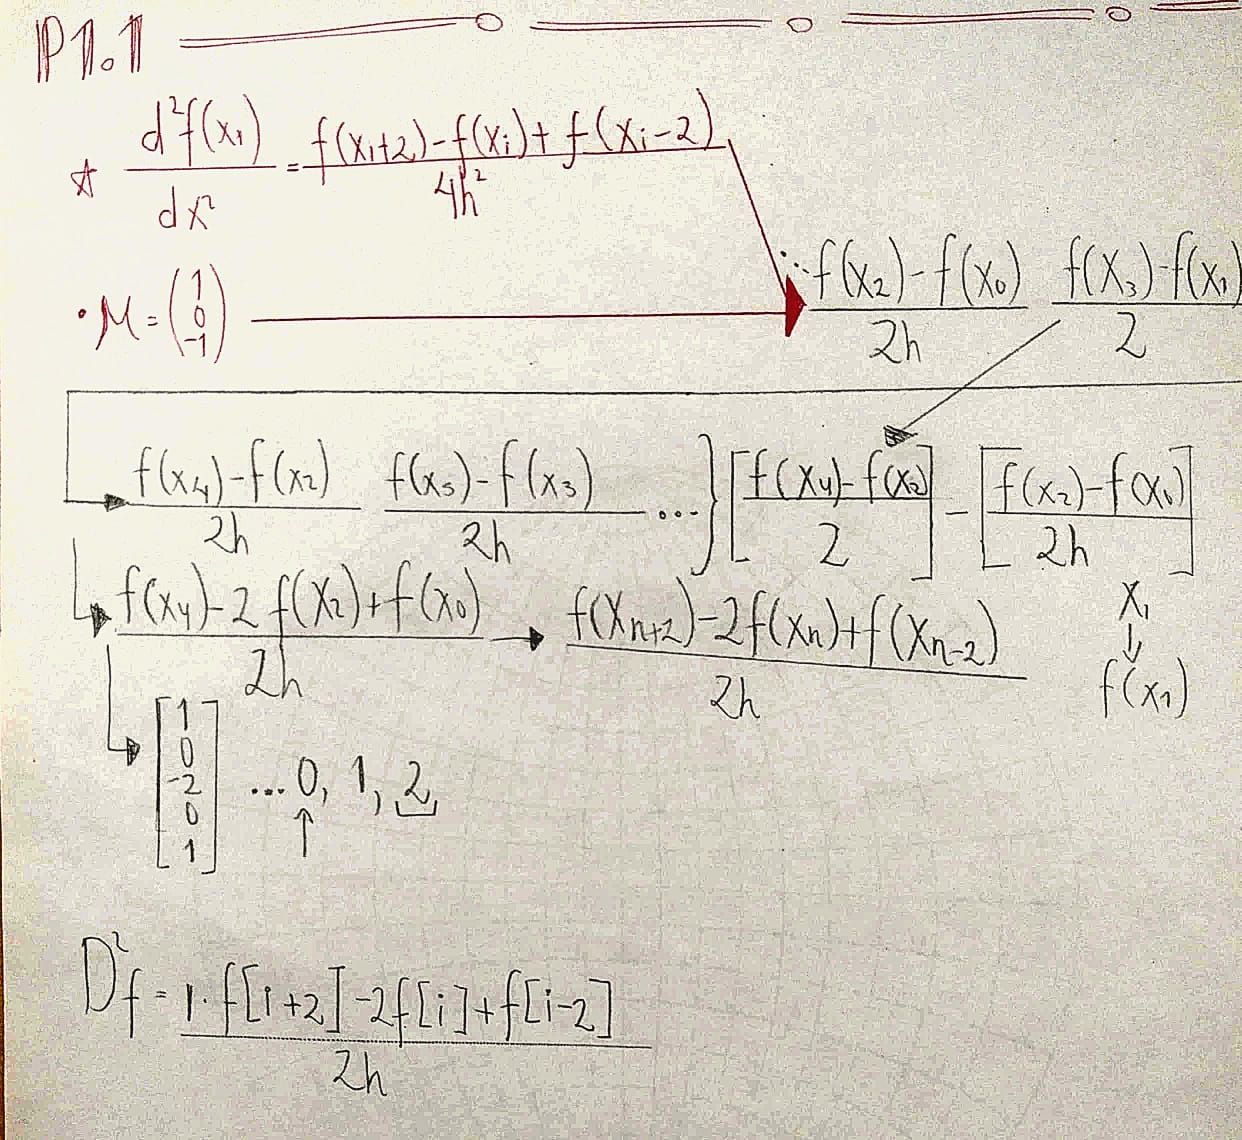 P1.1
☆ d²f(x₁)/dx² = f(x₁+2)-f(xᵢ)+f(xᵢ-2)/4h²
∴ f(x₂)-f(x₀)/2h f(x₃)-f(x₁)/2
• M = (1 0 -1)
f(x₄)-f(x₂)/2h f(x₅)-f(x₃)/2h ...} [f(x₄)-f(x₂)/2] - [f(x₂)-f(x₀)/2h]
f(x₄)-2f(x₂)+f(x₀)/2h → f(xₙ₊₂)-2f(xₙ)+f(xₙ₋₂)/2h
x₁
↓
f(x₁)
[1 0 -2 0 1] ...0, 1, 2
↑
D²f = 1·f[i+2]-2f[i]+f[i-2]/2h